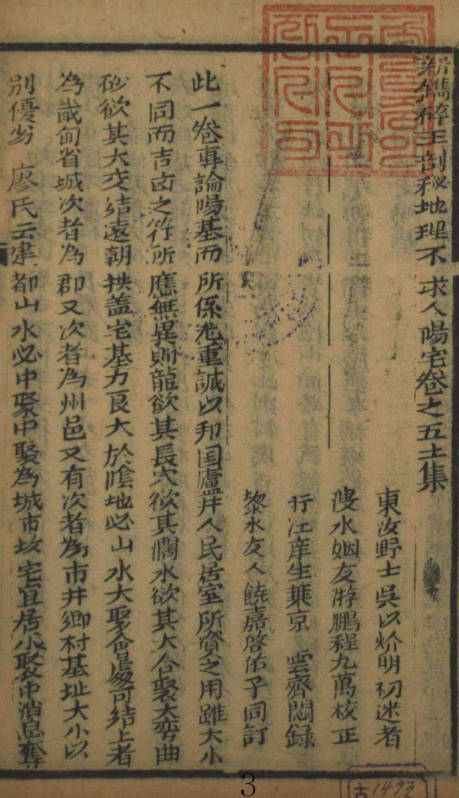 新鐫碎玉剖秘地理不求人陽宅卷之五上集
東汝野士吳以炌明初述者
慢水姻友蔣鵬程九萬校正
行江庠生葉京雲齊閱錄
黎水友人饒嘉啓佑子同訂
此一卷專論陽基而所係尤重誠以邦国廬井人民居室所資之用雖大小
不同而吉凶之符所應無異則龍欲其長穴欲其濶水欲其大合聚大弯曲
砂欲其大交結遠朝拱盖宅基力良大於陰地必山水大聚會處可結上者
為畿甸省城次者為郡又次者為州邑又有次者為市井鄉村基址大小以
別優劣 廖氏云建都山水必中聚中聚為城市坟宅宜居小聚中消息奪
3
古1493